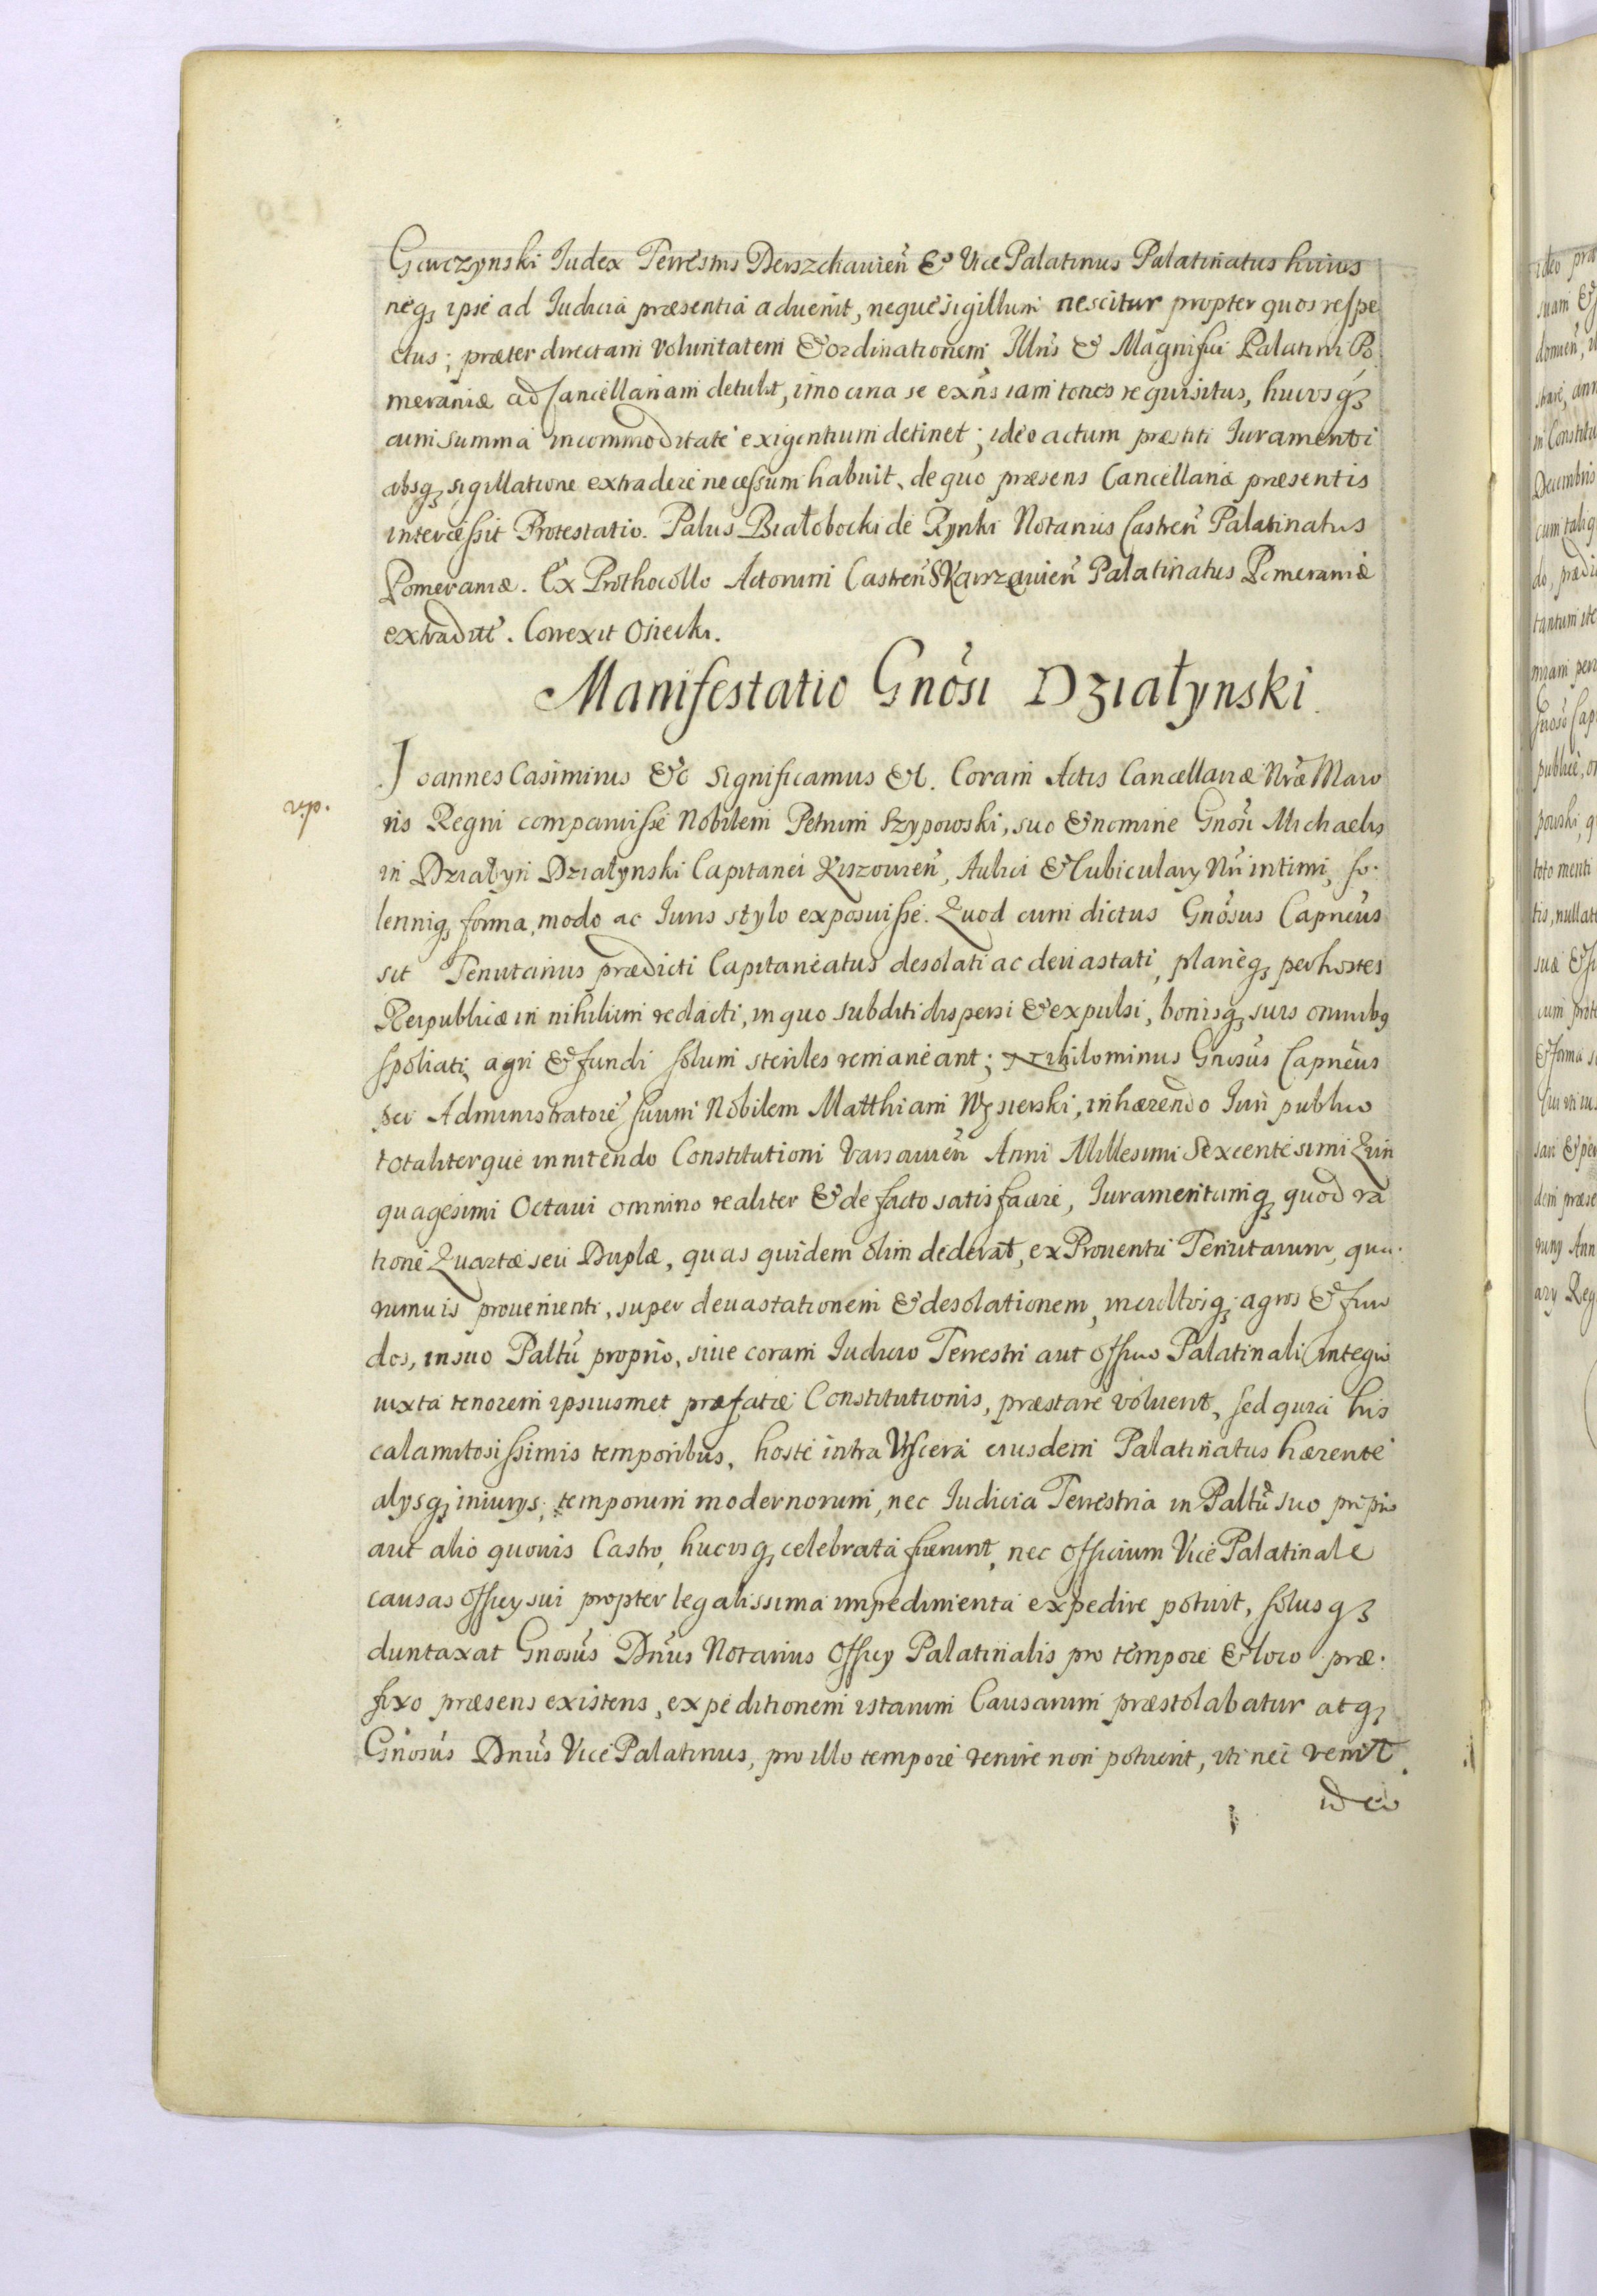 Garczynski Iudex Terrestris Derszchauien̄ & Vice Palatinus Palatinatus huius
neq₃ ipse ad Iudicia præsentia aduenit, neque sigillum nescitur propter quos respe
ctus; præter directam voluntatem & ordinationem Illrīs & Magnifici Palatini Po
meraniæ ad Cancellariam detulit, imo circa se exn̄s iam toties requisitus, hucusq₃
cum summa incommoditate exigentium detinet; ideo actum præstiti Iuramenti
absq₃ sigillatione extradere necessum habuit, de quo præsens Cancellariæ præsentis
intercessit Protestatio. Palus Białobocki de Rynki Notarius Castren̄ Palatinatus
Pomeraniæ. Ex Prothocollo Actorum Castren̄ Skarzauien̄ Palatinatus Pomeraniæ
extradit̄. Correxit Osiecki.
Manifestatio Gnōsi Działynski.
Ioannes Casimirus &c Significamus &c. Coram Actis Cancellariæ Nr̄æ Maio
vp.
ris Regni comparuisse Nobilem Petrum Szypowski, suo & nomine Gnōsi Michaelis
in Działyn Działynski Capitanei Kiszouien̄, Aulici & Cubiculary Nr̄i intimi, so.
lenniq₃ forma, modo ac Iuris stylo exposuisse. Quod cum dictus Gnōsus Capnēus
sit Tenutarius prædicti Capitaneatus desolati ac deuastati, planeq₃ per hostes
Reipublicæ in nihilum redacti, in quo subditi dispersi & expulsi, bonisq₃ suis omnibꝫ
spoliati, agri & fundi solum steriles remaneant; Nihilominus Gnosūs Capnēus
per Administratorē suum Nobilem Matthiam Węsierski, inhærendo Iuri publico
totaliterque innitendo Constitutioni Varsauien̄ Anni Millesimi Sexcentesimi Quin
quagesimi Octaui omnino realiter & de facto satisfacere, Iuramentumq₃ quod ra
tione Quartæ seu Duplæ, quas quidem olim dederat, ex Prouentu Tenutarum, qua.
rumuis prouenienti, super deuastationem & desolationem, incultosq₃ agros & fun
dos, in suo Paltū proprio, siue coram Iudicio Terrestri aut officio Palatinali integro
iuxta tenorem ipsiusmet præfatæ Constitutionis, præstare voluerit, sed quia his
calamitosissimis temporibus, hoste intra Viscera eiusdem Palatinatus hærente
alysq₃ iniurys, temporum modernorum, nec Iudicia Terrestria in Paltū suo proprio
aut alio quouis Castro, hucusq₃ celebrata fuerunt, nec officium Vice Palatinale
causas officy sui propter legalissima impedimenta expedire potuit, solusq₃
duntaxat Gnosūs Dnūs Notarius Officy Palatinalis pro tempore & loco præ.
fixo præsens existens, expeditionem istarum Causarum præstolabatur atq₃
Gnosūs Dnūs Vice Palatinus, pro illo tempore venire non potuerit, uti nec venit.
ideo